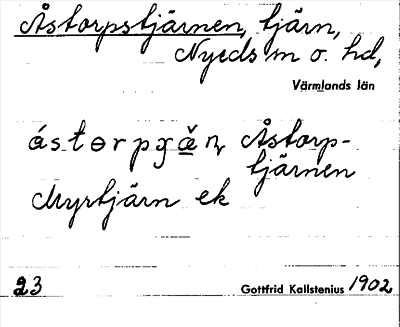 Åstorpstjärnen, tjärn,
Nyeds sn o. hd,
Värmlands län
Åstorp-
tjärnen
Myrtjärn ek
23 Gottfrid Kallstenius 1902